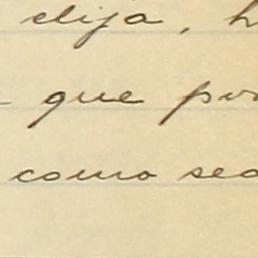 elija, h
que po
como sea